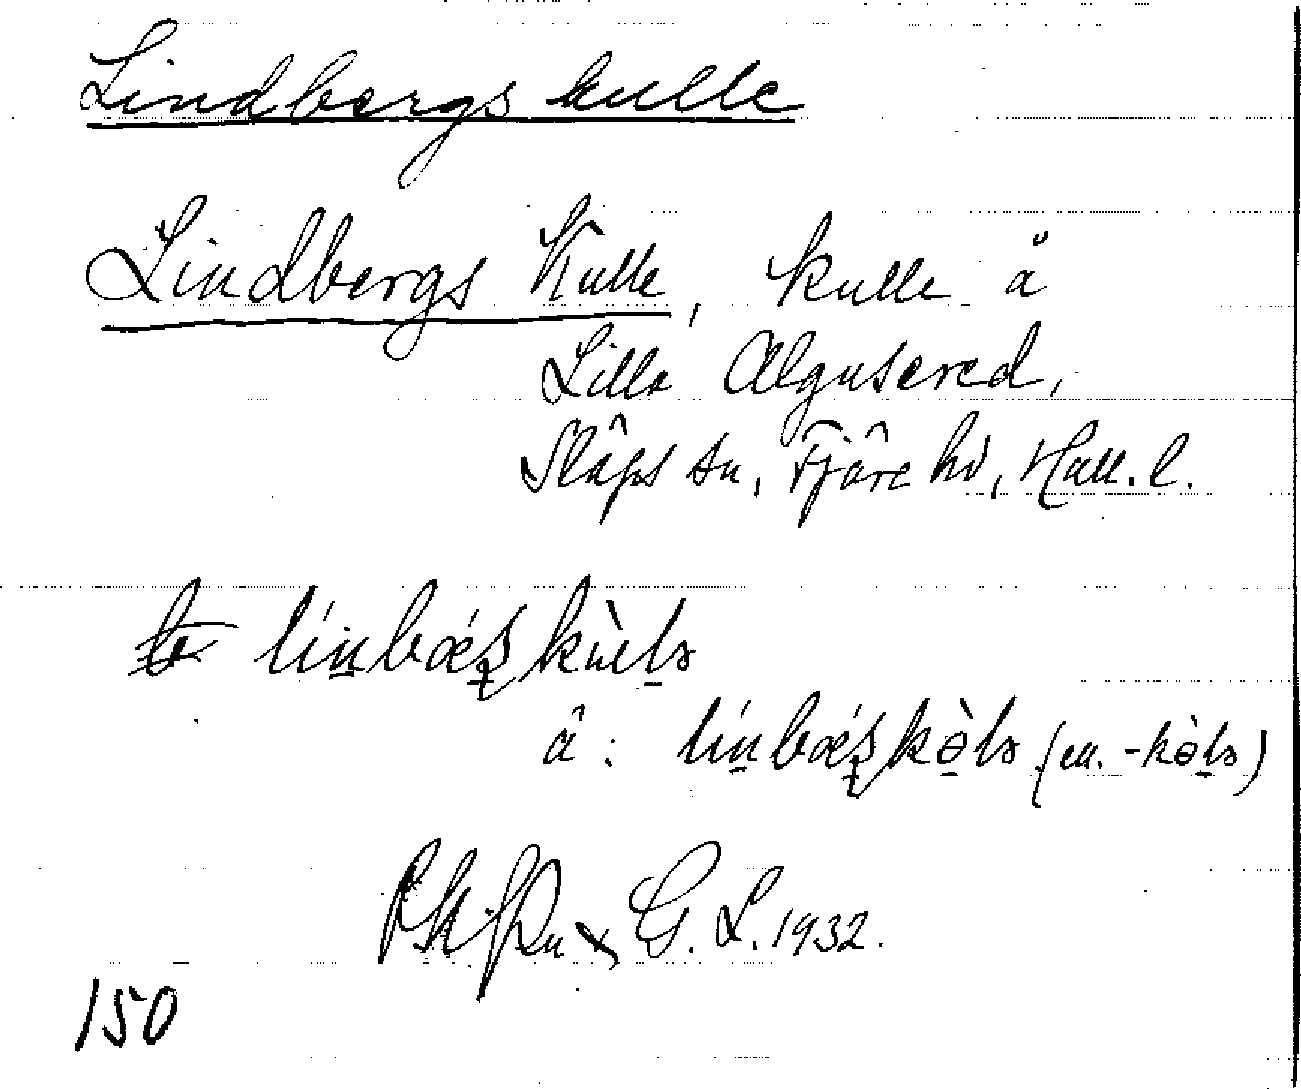 Lindbergs kulle
Lindbergs Kulle, kulle å
Lilla Algusered,
Släps sn, Fjäre hd, Hall. l.
li̱nbæ̱ʂkùlə
ä: li̱nbæ̱ʂkɵ̀lə (en. -kɵ̀lə)
G. L. 1932.
150